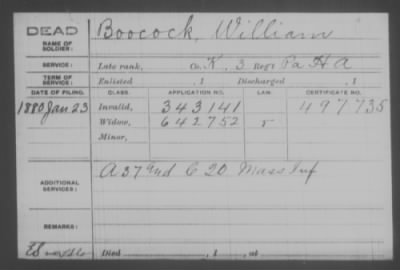 DEAD Boocock, William
NAME OF SOLDIER:
SERVICE: Late rank, Co. K, 3 Reg't Pa H A
TERM OF SERVICE: Enlisted , 1 Discharged , 1
DATE OF FILING. CLASS. APPLICATION NO. LAW. CERTIFICATE NO.
1880 Jan 23 Invalid, 343141 497735
Widow, 642752
Minor,
ADDITIONAL SERVICES: A 37 and C 20 Mass Inf
REMARKS:
Died , 1 , at